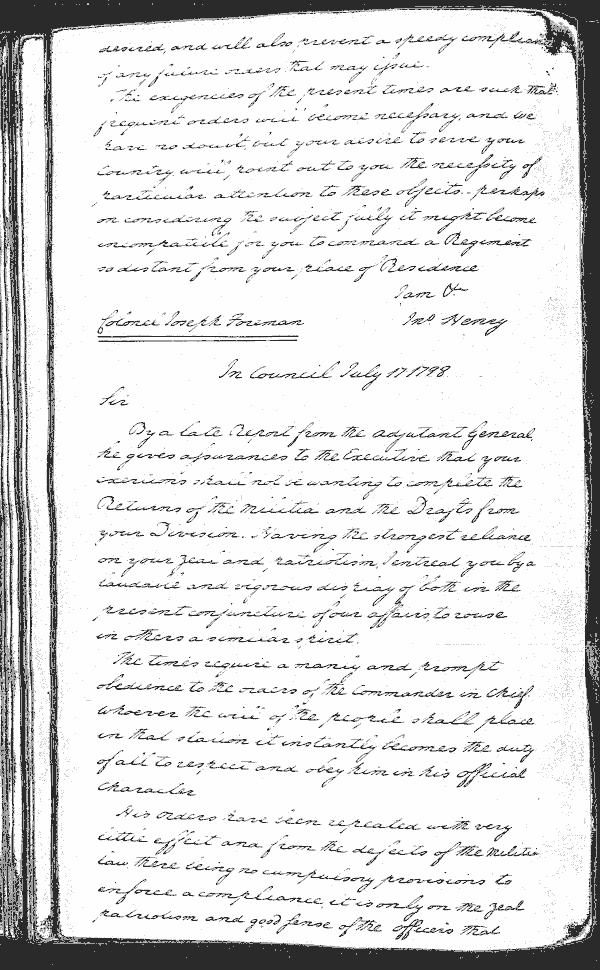 desired, and will also prevent a speedy compliance
of any future orders that may issue.
The exigencies of the present times are such that
frequent orders will become necessary, and we
have no doubt, but your desire to serve your
Country will point out to you the necessity of
particular attention to these objects. - perhaps
on considering the subject fully it might become
incompatible for you to command a Regiment
so distant from your place of Residence
I am &c
Colonel Joseph Foreman Jno Henry
In Council July 17 1798
Sir
By a late Report from the Adjutant General,
he gives assurances to the Executive that your
exertions shall not be wanting to complete the
Returns of the Militia and the Drafts from
your Division. Having the strongest reliance
on your zeal and patriotism, I entreat you by a
laudable and vigorous display of both in the
present conjuncture of our affairs, to rouse
in others a similar spirit.
The times require a manly and prompt
obedience to the orders of the Commander in Chief
whoever the will of the people shall place
in that station it instantly becomes the duty
of all to respect and obey him in his official
Character
His orders have been repeated with very
little effect and from the defects of the Militia
law, there being no compulsory provisions to
enforce a compliance, it is only on the zeal
patriotism and good sense of the officers that